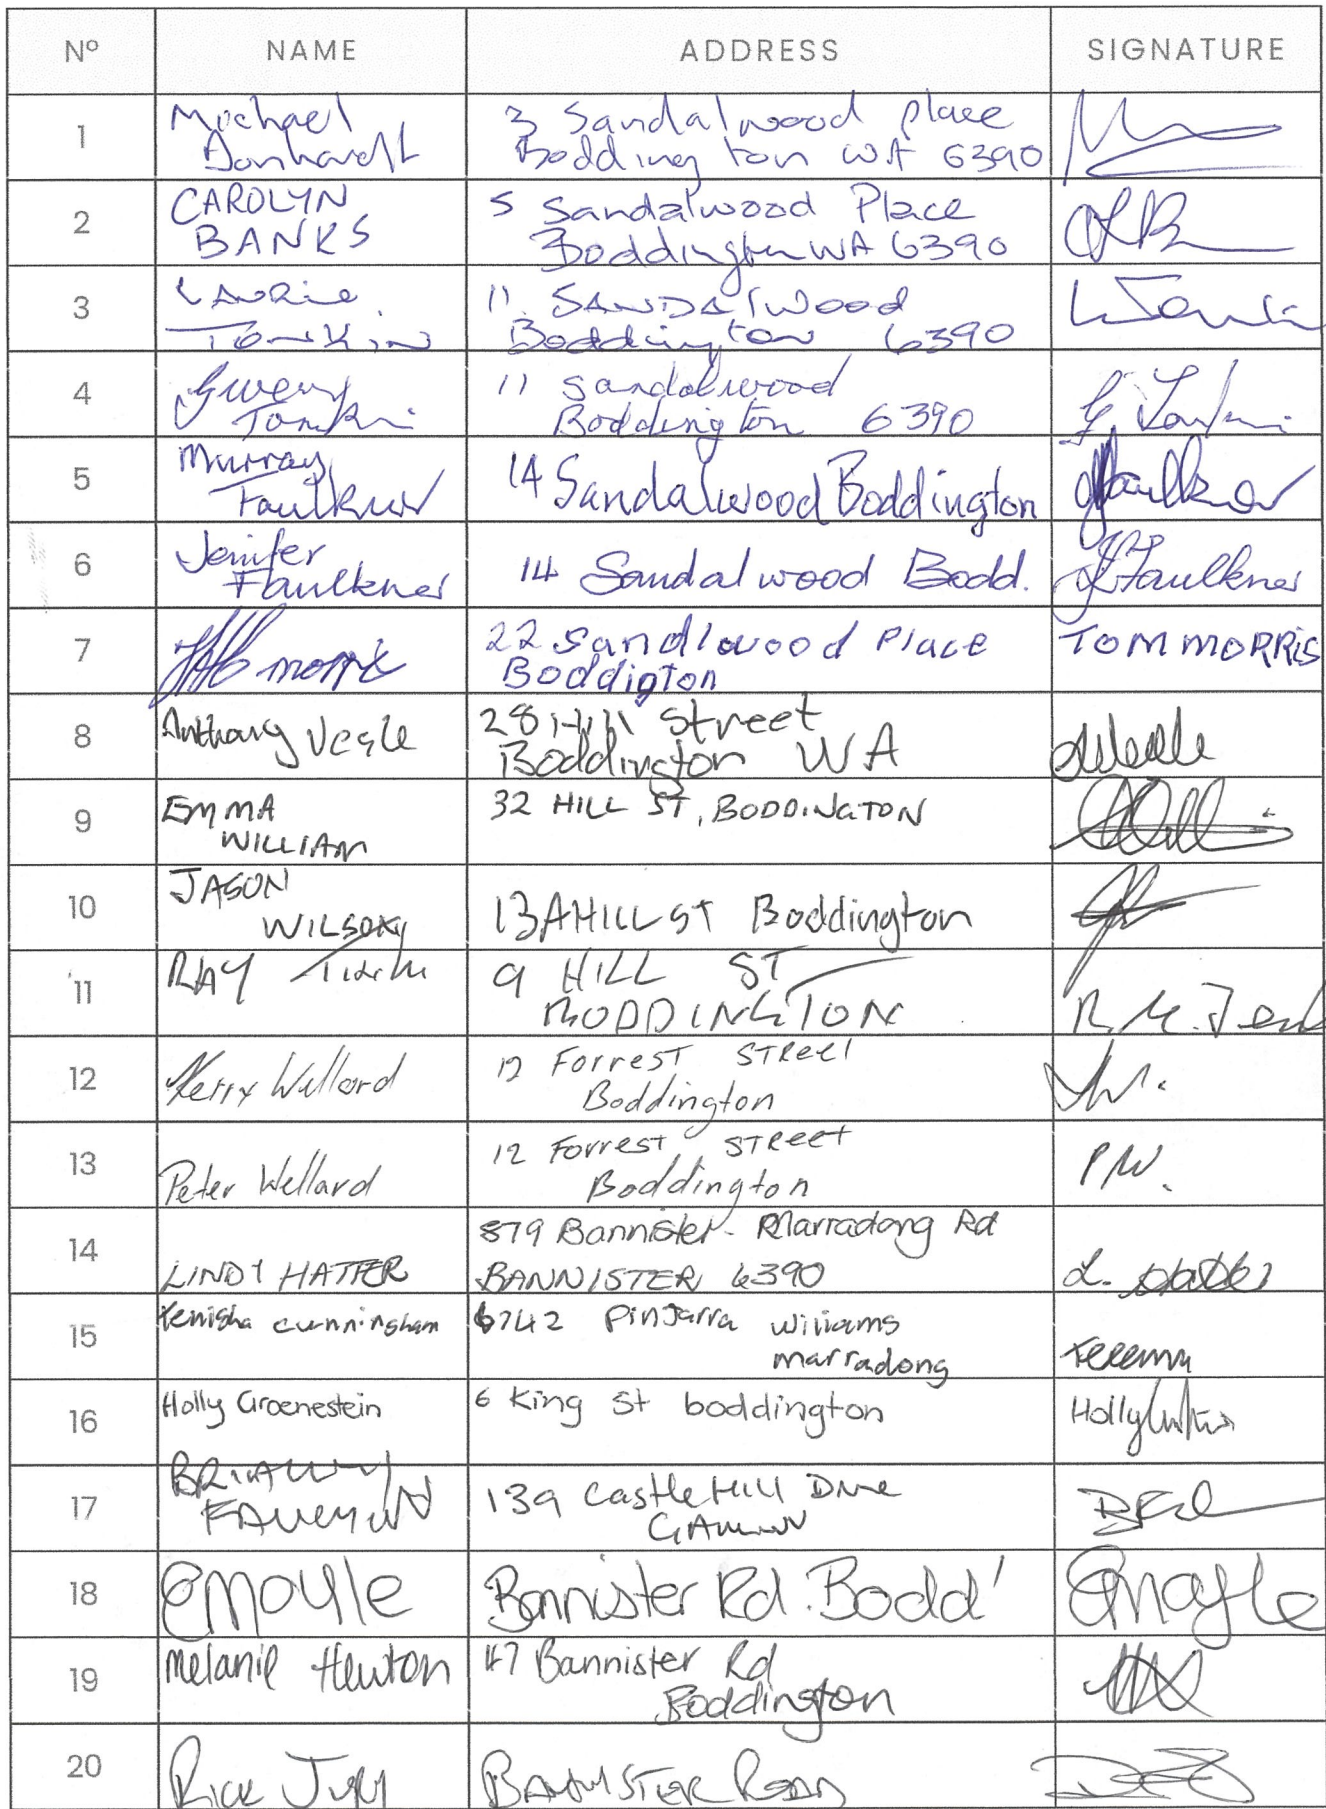 Nº NAME ADDRESS SIGNATURE
1 Michael 3 Sandalwood place
Danhardt Boddington WA 6390
2 CAROLYN 5 Sandalwood Place
BANKS Boddington WA 6390
3 LAURIE 11. SANDALWOOD
TONKIN Boddington 6390
4 Gweny 11 Sandalwood
Tonkin Boddington 6390 G. Tonkin
5 Murray
Faulkner 14 Sandalwood Boddington Faulkner
6 Jenifer
Faulkner 14 Sandalwood Bodd. J Faulkner
7 morris 22 Sandlwood Place TOM MORRIS
Boddigton
8 Anthony Veale 28 Hill Street
Boddington WA
9 EMMA 32 HILL ST, BODDINGTON
WILLIAM
10 JASON
WILSON 13A HILL ST Boddington
11 RAY 9 HILL ST
BODDINGTON R.M.
12 Kerry Wellard 12 Forrest Street
Boddington
13 Peter Wellard 12 Forrest Street P.W.
Boddington
14 879 Bannister-Marradong Rd
LINDY HATTER BANNISTER 6390 L. Hatter
15 Tenisha cunningham 6742 Pinjarra Williams
marradong
16 Holly Groenestein 6 King St boddington Holly
17 139 Castle Hill Drive
18 EMoyle Bannister Rd. Bodd' EMoyle
19 Melanie Hewton 47 Bannister Rd
Boddington
20 Rick BANNISTER ROAD